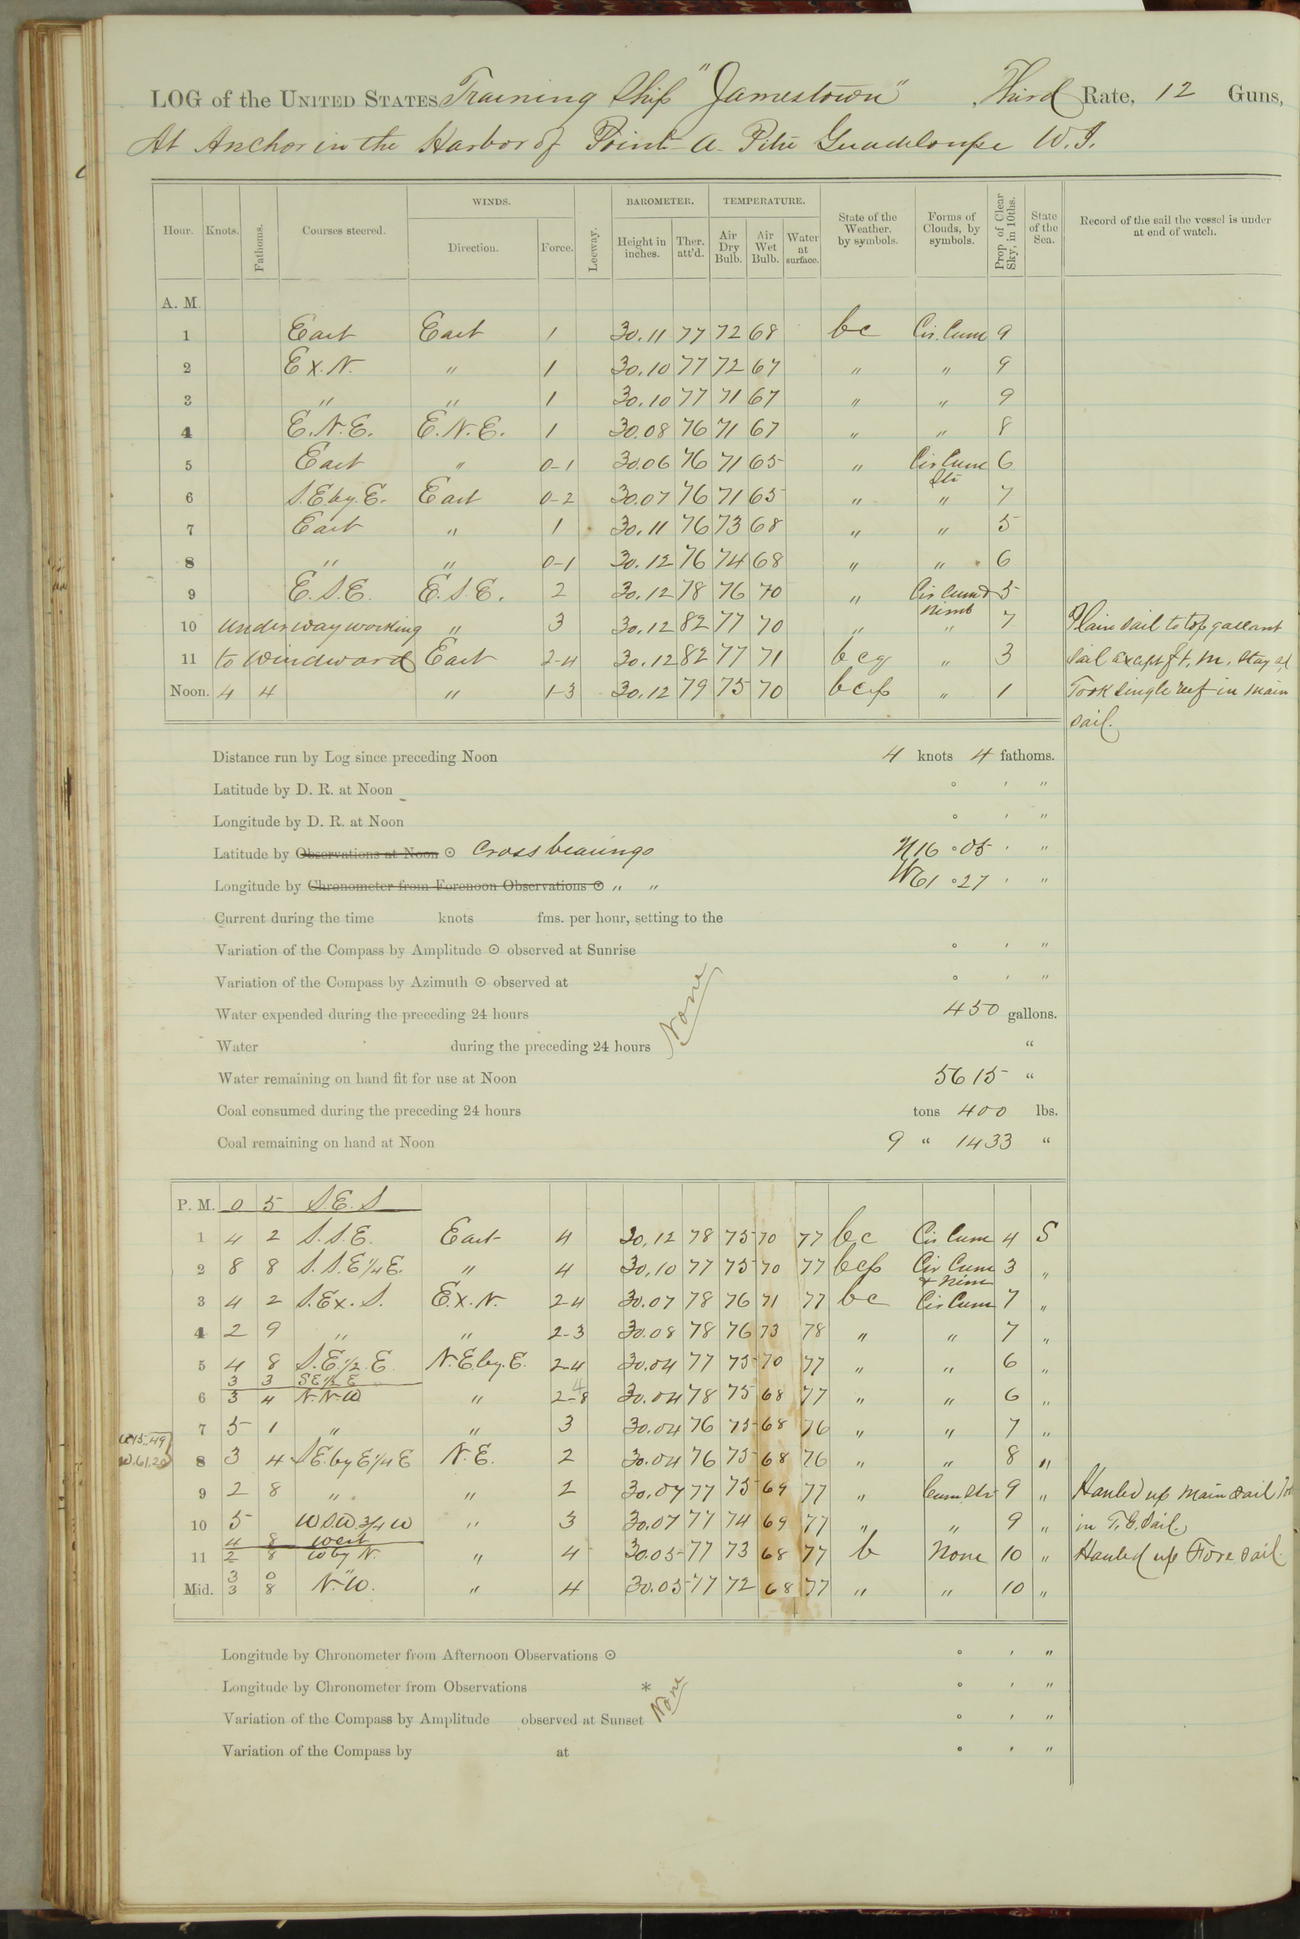 LOG of the UNITED STATES Training Ship "Jamestown", Third Rate, 12 Guns,
At Anchor in the Harbor of Point-a-Pitre Guadeloupe W.I.
Hour. Knots. Fathoms. Courses steered. WINDS. Direction. Force. Leeway. BAROMETER. Height in inches. Ther. att'd. TEMPERATURE. Air Dry Bulb. Air Wet Bulb. Water at surface. State of the Weather, by symbols. Forms of Clouds, by symbols. Prop. of Clear Sky, in 10ths. State of the Sea. Record of the sail the vessel is under at end of watch.
A. M.
1 East East 1 30.11 77 72 68 bc Cir. Cum 9
2 E x. N. " 1 30.10 77 72 67 " " 9
3 " " 1 30.10 77 71 67 " " 9
4 E.N.E. E.N.E. 1 30.08 76 71 67 " " 8
5 East " 0-1 30.06 76 71 65 " Cir Cum Str 6
6 S.E. by. E. East 0-2 30.07 76 71 65 " " 7
7 East " 1 30.11 76 73 68 " " 5
8 " " 0-1 30.12 76 74 68 " " 6
9 E.S.E. E.S.E. 2 30.12 78 76 70 " Cir Cum & Nimb 5
10 underway working " 3 30.12 82 77 70 " " 7 Plain sail to top gallant
11 to windward East 2-4 30.12 82 77 71 bcq " 3 sail except
Noon. 4 4 " 1-3 30.12 79 75 70 bcp " 1 Took single reef in main
sail.
Distance run by Log since preceding Noon 4 knots 4 fathoms.
Latitude by D. R. at Noon ° ′ ″
Longitude by D. R. at Noon ° ′ ″
Latitude by Observations at Noon ⊙ Cross bearings N 16 ° 05 ′ ″
Longitude by Chronometer from Forenoon Observations ⊙ " " W 61 ° 27 ′ ″
Current during the time knots fms. per hour, setting to the
Variation of the Compass by Amplitude ⊙ observed at Sunrise ° ′ ″
Variation of the Compass by Azimuth ⊙ observed at ° ′ ″
None
Water expended during the preceding 24 hours 450 gallons.
Water during the preceding 24 hours "
Water remaining on hand fit for use at Noon 5615 "
Coal consumed during the preceding 24 hours tons 400 lbs.
Coal remaining on hand at Noon 9 " 1433 "
P. M. 0 5 S.E. S
1 4 2 S.S.E. East 4 30.12 78 75 70 77 bc Cir Cum 4 S
2 8 8 S.S.E 1/4 E. " 4 30.10 77 75 70 77 bcp Cir Cum & Nim 3 "
3 4 2 S.E x. S. E. x. N. 2-4 30.07 78 76 71 77 bc Cir Cum 7 "
4 2 9 " " 2-3 30.08 78 76 73 78 " " 7 "
5 4 8 S.E. 1/2. E N.E. by. E. 2-4 30.04 77 75 70 77 " " 6 "
3 3 SE 1/2 E
6 3 4 N.N.W " 2-8 4 30.04 78 75 68 77 " " 6 "
7 5 1 " " 3 30.04 76 75 68 76 " " 7 "
W.61.20
8 3 4 S.E. by E 1/4 E N.E. 2 30.04 76 75 68 76 " " 8 "
9 2 8 " " 2 30.07 77 75 69 77 " Cum. Str 9 " Hauled up main sail
10 5 W.S.W. 3/4 W " 3 30.07 77 74 69 77 " " 9 " in T.G. Sail.
4 8 West
11 2 8 W by N. " 4 30.05 77 73 68 77 b None 10 " Hauled up Fore sail.
3 0 "
Mid. 3 8 N.W. " 4 30.05 77 72 68 77 " " 10 "
Longitude by Chronometer from Afternoon Observations ⊙ ° ′ ″
Longitude by Chronometer from Observations * ° ′ ″
None
Variation of the Compass by Amplitude observed at Sunset ° ′ ″
Variation of the Compass by at ° ′ ″